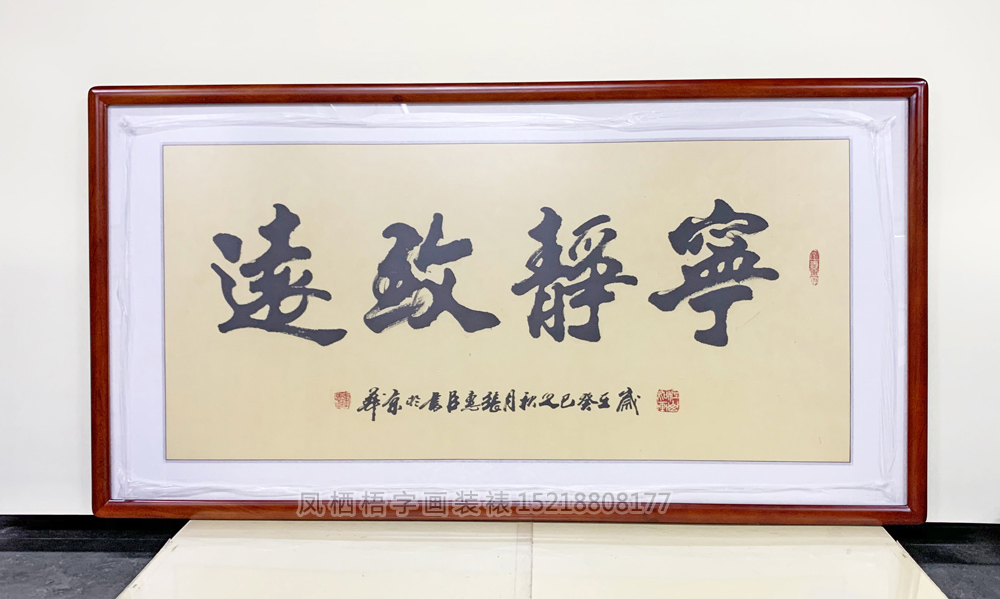 寧靜致遠
歲在癸巳之秋月張惠臣書於京華
凤栖梧字画装裱15218808177